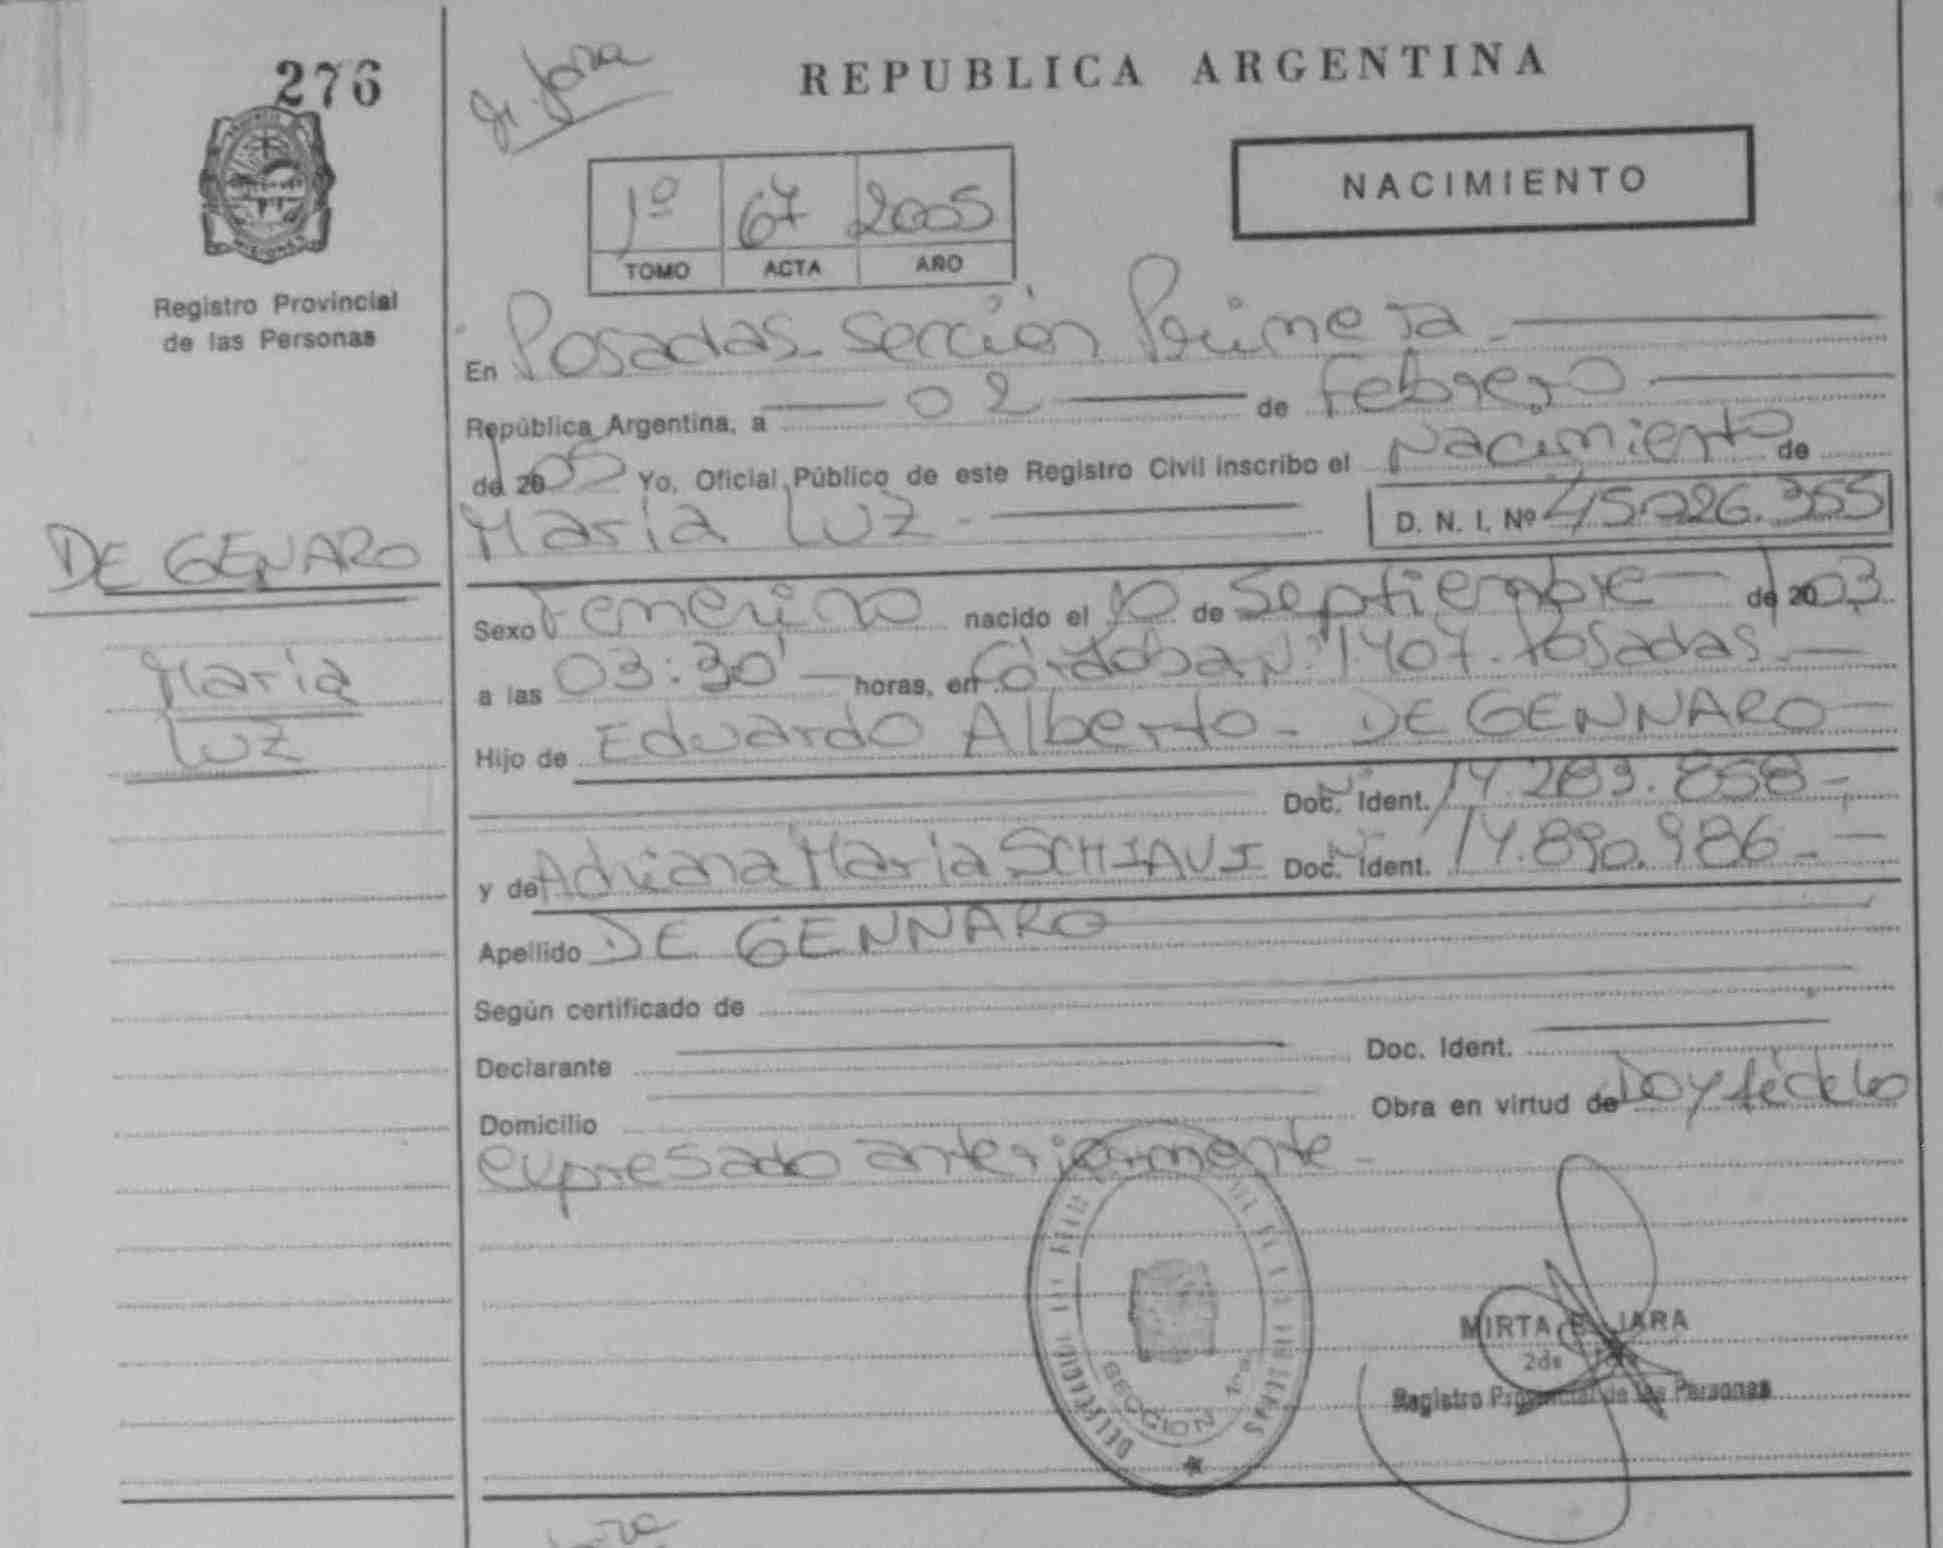 276
Registro Provincial
de las Personas
DE GENARO
María
Luz
REPUBLICA ARGENTINA
NACIMIENTO
1º 67 2005
TOMO ACTA AÑO
En Posadas - Sección Primera
República Argentina, a 02 de Febrero
de 2005 Yo, Oficial Público de este Registro Civil inscribo el Nacimiento de
María Luz - D. N. I. Nº 45.026.355
Sexo Femenino nacido el 10 de Septiembre de 2003
a las 03:30' horas, en Córdoba Nº 1.407 - Posadas -
Hijo de Eduardo Alberto - DE GENNARO
Doc. Nº Ident. 14.289.858 -
y de Adriana María SCHIAVI Doc. Nº Ident. 14.890.986 -
Apellido DE GENNARO
Según certificado de
Declarante Doc. Ident.
Domicilio Obra en virtud de Doy fé de lo
expresado anteriormente -
SECCION 1ra
MIRTA E. JARA
Registro Provincial de las Personas